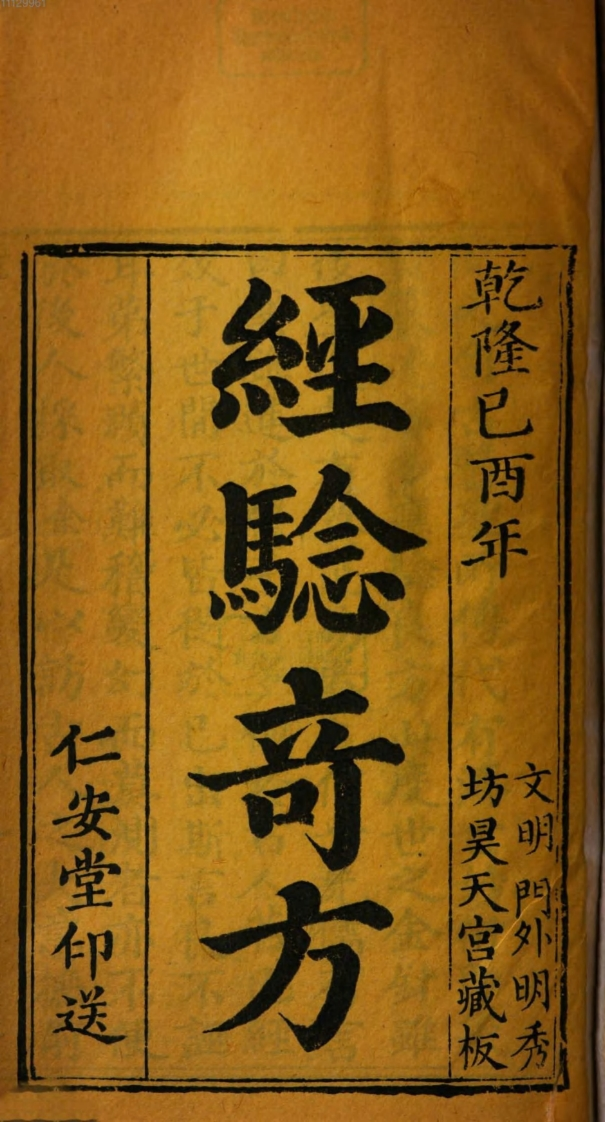 11129961
乾隆己酉年
文明門外明秀
坊昊天宮藏板
經騐竒方
仁安堂印送